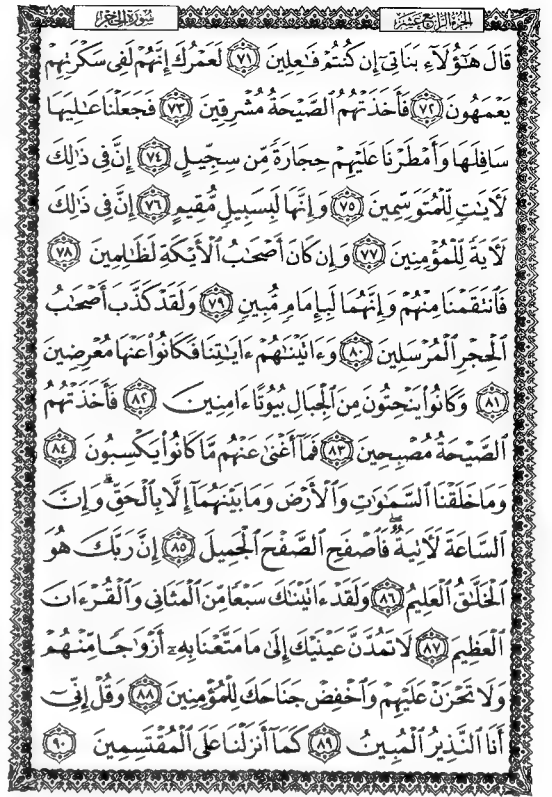 سُورَةُ الحِجْرِ
الجزء الرابع عشر
قَالَ هَٰٓؤُلَآءِ بَنَاتِىٓ إِن كُنتُمْ فَٰعِلِينَ ﴿٧١﴾ لَعَمْرُكَ إِنَّهُمْ لَفِى سَكْرَتِهِمْ
يَعْمَهُونَ ﴿٧٢﴾ فَأَخَذَتْهُمُ ٱلصَّيْحَةُ مُشْرِقِينَ ﴿٧٣﴾ فَجَعَلْنَا عَٰلِيَهَا
سَافِلَهَا وَأَمْطَرْنَا عَلَيْهِمْ حِجَارَةً مِّن سِجِّيلٍ ﴿٧٤﴾ إِنَّ فِى ذَٰلِكَ
لَأٓيَٰتٍ لِّلْمُتَوَسِّمِينَ ﴿٧٥﴾ وَإِنَّهَا لَبِسَبِيلٍ مُّقِيمٍ ﴿٧٦﴾ إِنَّ فِى ذَٰلِكَ
لَأٓيَةً لِّلْمُؤْمِنِينَ ﴿٧٧﴾ وَإِن كَانَ أَصْحَٰبُ ٱلْأَيْكَةِ لَظَٰلِمِينَ ﴿٧٨﴾
فَٱنتَقَمْنَا مِنْهُمْ وَإِنَّهُمَا لَبِإِمَامٍ مُّبِينٍ ﴿٧٩﴾ وَلَقَدْ كَذَّبَ أَصْحَٰبُ
ٱلْحِجْرِ ٱلْمُرْسَلِينَ ﴿٨٠﴾ وَءَاتَيْنَٰهُمْ ءَايَٰتِنَا فَكَانُوا۟ عَنْهَا مُعْرِضِينَ
﴿٨١﴾ وَكَانُوا۟ يَنْحِتُونَ مِنَ ٱلْجِبَالِ بُيُوتًا ءَامِنِينَ ﴿٨٢﴾ فَأَخَذَتْهُمُ
ٱلصَّيْحَةُ مُصْبِحِينَ ﴿٨٣﴾ فَمَآ أَغْنَىٰ عَنْهُم مَّا كَانُوا۟ يَكْسِبُونَ ﴿٨٤﴾
وَمَا خَلَقْنَا ٱلسَّمَٰوَٰتِ وَٱلْأَرْضَ وَمَا بَيْنَهُمَآ إِلَّا بِٱلْحَقِّ ۗ وَإِنَّ
ٱلسَّاعَةَ لَأٓتِيَةٌ ۖ فَٱصْفَحِ ٱلصَّفْحَ ٱلْجَمِيلَ ﴿٨٥﴾ إِنَّ رَبَّكَ هُوَ
ٱلْخَلَّٰقُ ٱلْعَلِيمُ ﴿٨٦﴾ وَلَقَدْ ءَاتَيْنَٰكَ سَبْعًا مِّنَ ٱلْمَثَانِى وَٱلْقُرْءَانَ
ٱلْعَظِيمَ ﴿٨٧﴾ لَا تَمُدَّنَّ عَيْنَيْكَ إِلَىٰ مَا مَتَّعْنَا بِهِۦٓ أَزْوَٰجًا مِّنْهُمْ
وَلَا تَحْزَنْ عَلَيْهِمْ وَٱخْفِضْ جَنَاحَكَ لِلْمُؤْمِنِينَ ﴿٨٨﴾ وَقُلْ إِنِّىٓ
أَنَا ٱلنَّذِيرُ ٱلْمُبِينُ ﴿٨٩﴾ كَمَآ أَنزَلْنَا عَلَى ٱلْمُقْتَسِمِينَ ﴿٩٠﴾